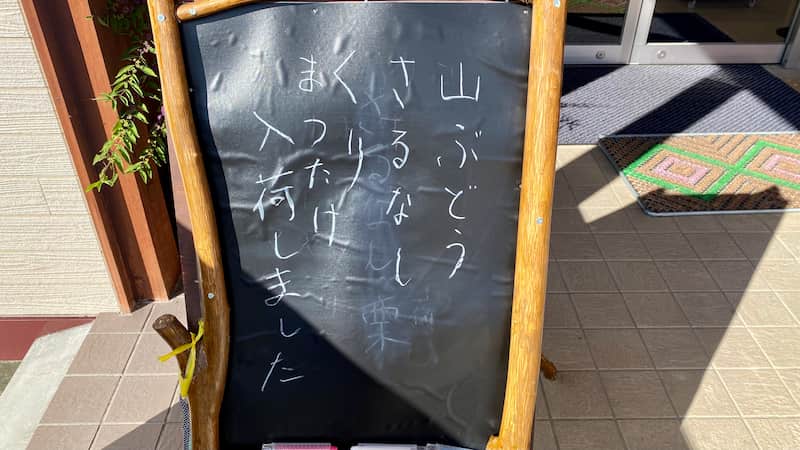 山ぶどう
さるなし
くり
まつたけ
入荷しました